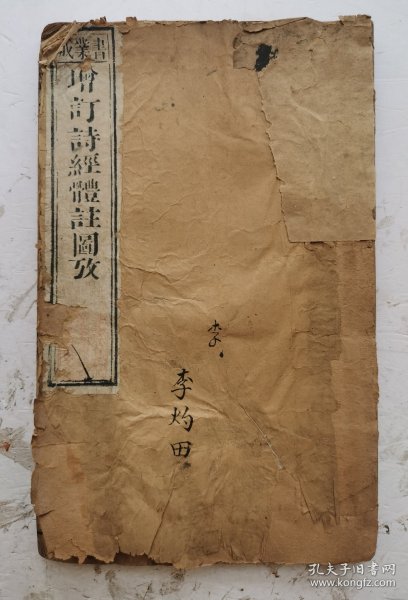 書業成
增訂詩經體註圖攷
李
李灼田
孔夫子旧书网
www.kongfz.com